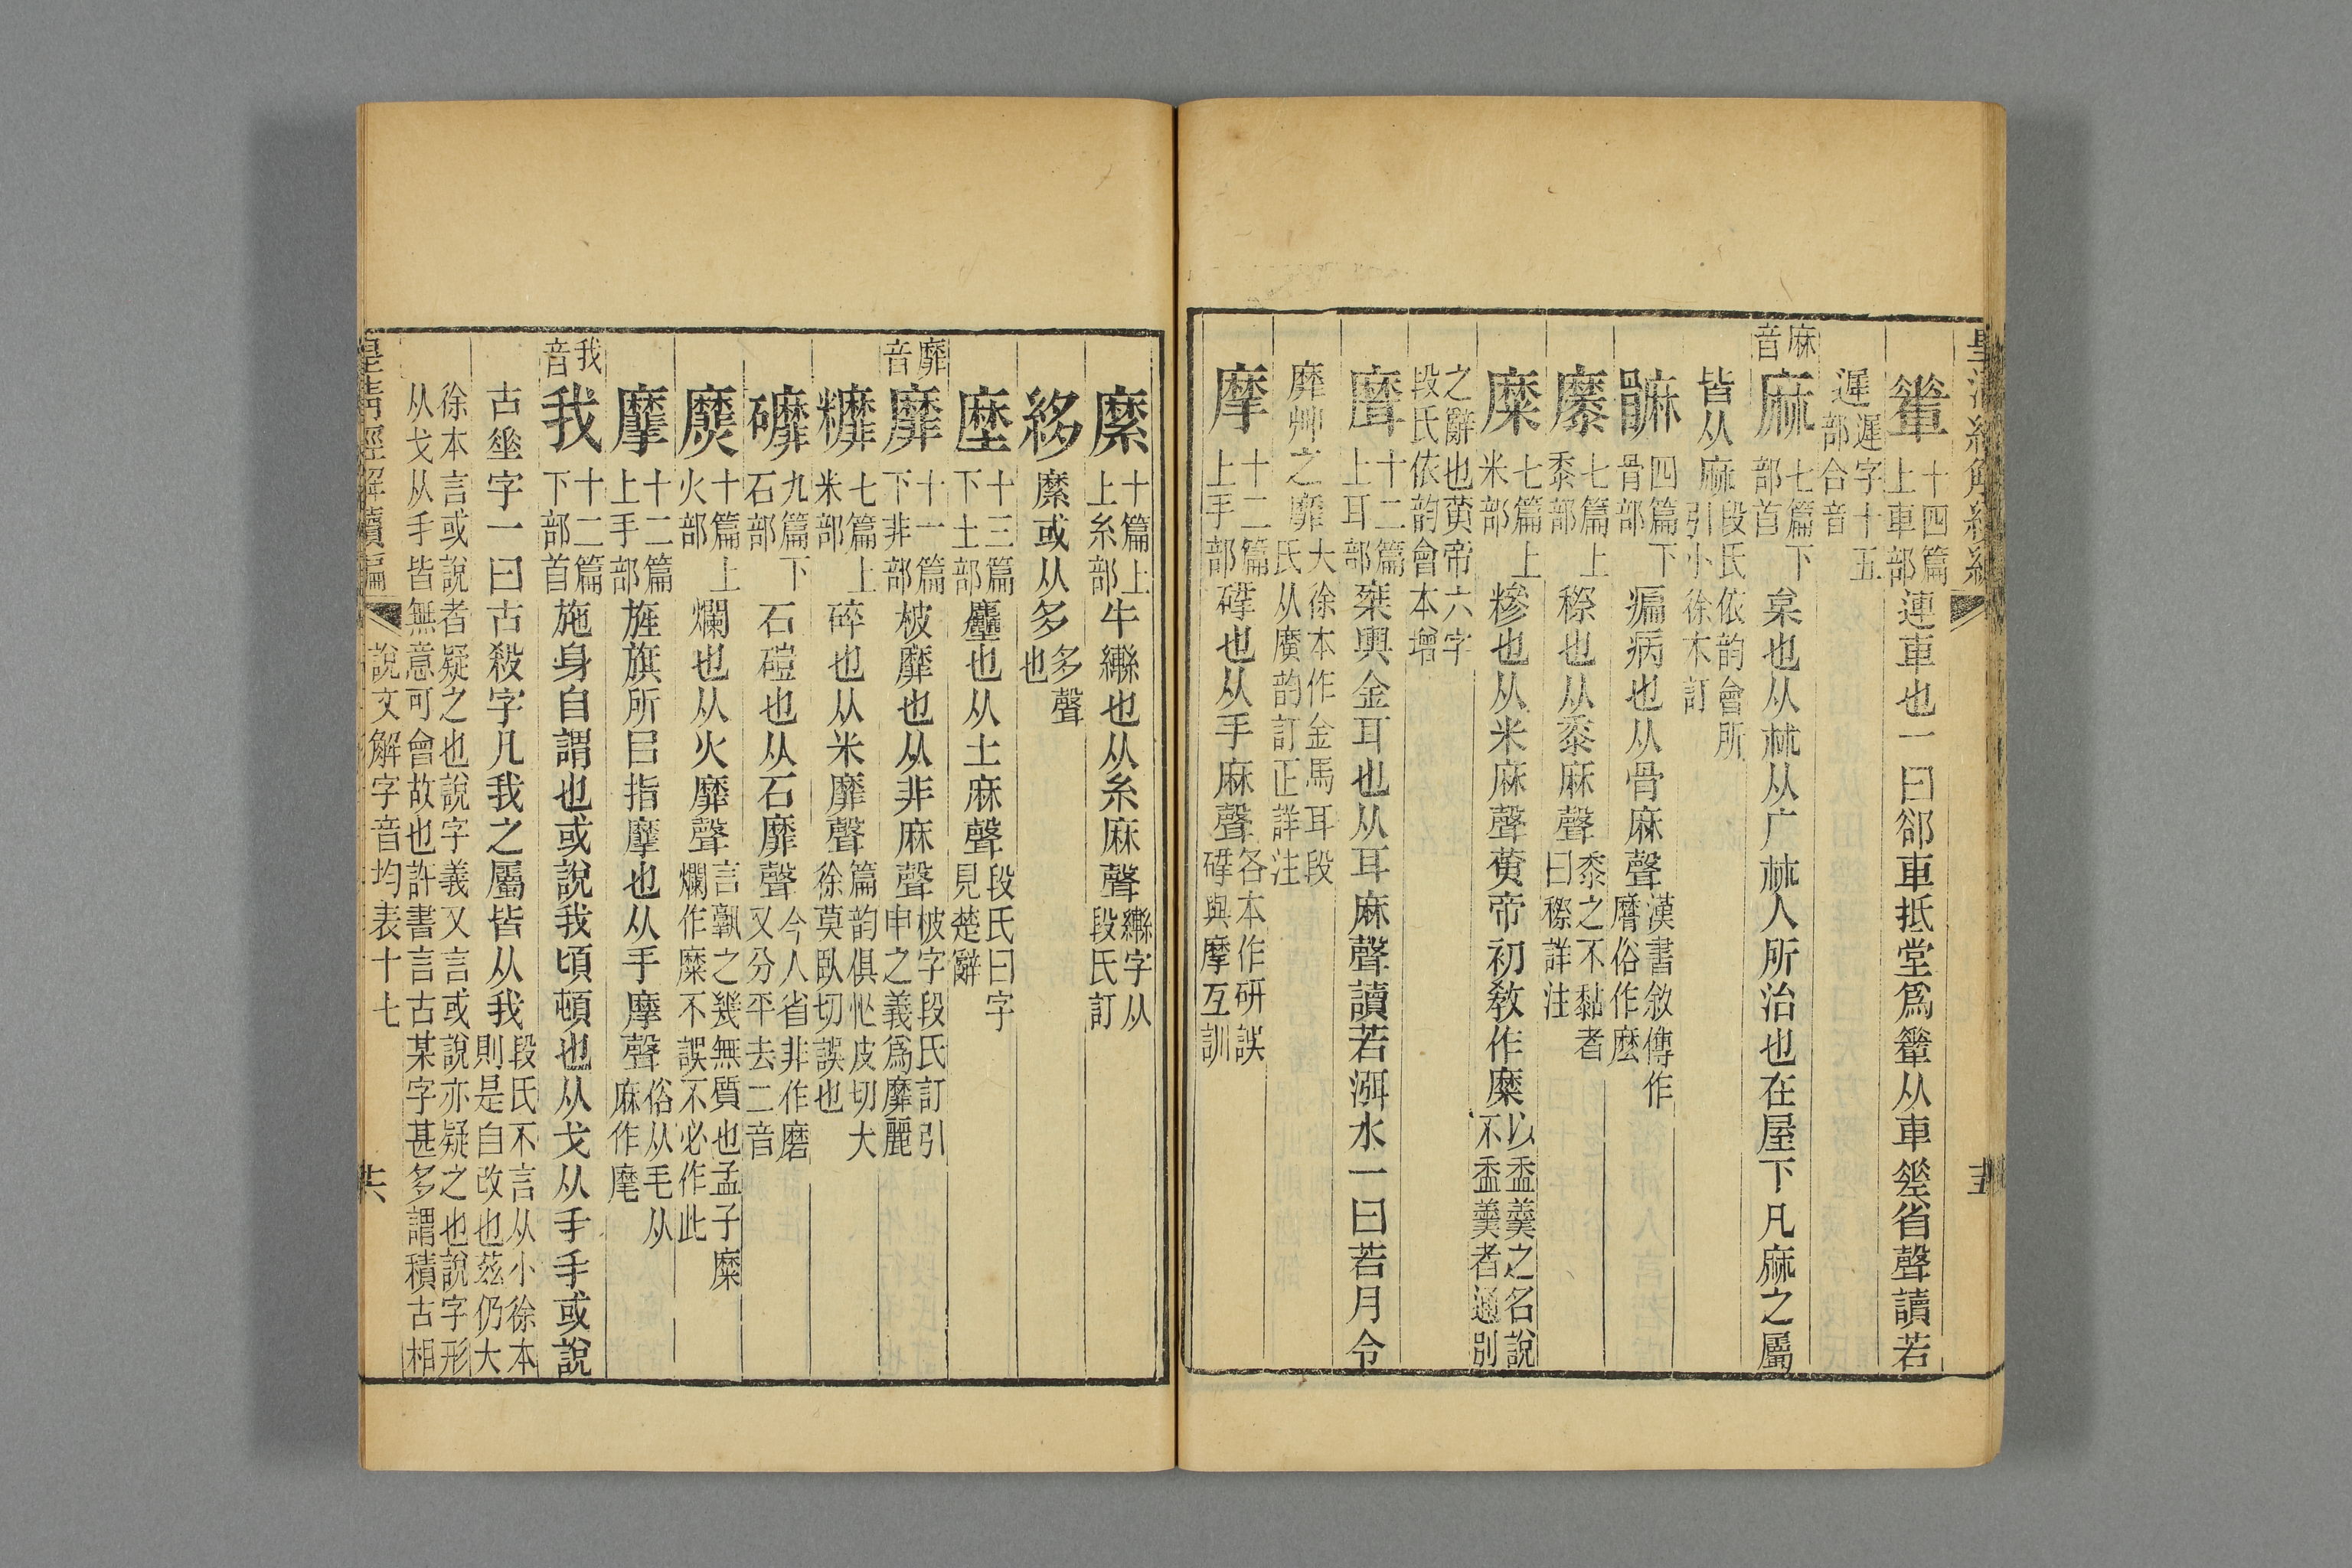 䡨十四篇上車部連車也一曰卻車抵堂爲䡨从車𢀩省聲讀若
遲遲字十五部合音
麻音麻七篇下部首枲也从𣏟从广𣏟人所治也在屋下凡麻之屬
皆从麻段氏依韵會所引小徐本訂
䯢四篇下骨部㾫病也从骨麻聲漢書敘傳作䯢俗作麽
𪎭七篇上黍部穄也从黍麻聲黍之不黏者曰穄詳注
糜七篇上米部糝也从米麻聲黃帝初敎作糜以盉羹之名說不盉羹者通別
之辭也黃帝六字段氏依韵會本增
𦗕十二篇上耳部乘輿金耳也从耳麻聲讀若洱水一曰若月令
靡艸之靡大徐本作金馬耳段氏从廣韵訂正詳注
摩十二篇上手部䃺也从手麻聲各本作研誤䃺與摩互訓
縻十篇上糸部牛繺也从糸麻聲繺字从段氏訂
𦃓縻或从多多聲也
塺十三篇下土部塵也从土麻聲段氏曰字見楚辭
靡音靡十一篇下非部柀靡也从非麻聲柀字段氏訂引申之義爲靡麗
䊳七篇上米部碎也从米靡聲篇韵俱忙皮切大徐莫臥切誤也
䃺九篇下石部石磑也从石靡聲今人省非作磨又分平去二音
㸏十篇上火部爛也从火靡聲言孰之幾無質也孟子糜爛作糜不誤不必作此
摩十二篇上手部旌旗所㠯指摩也从手靡聲俗从毛从麻作麾
我音我十二篇下部首施身自謂也或說我頃頓也从戈从𠄒𠄒或說
古𠂹字一曰古殺字凡我之屬皆从我段氏不言从小徐本則是自改也茲仍大
徐本言或說者疑之也說字義又言或說亦疑之也說字形从戈从手皆無意可會故也許書言古某字甚多謂積古相
皇清經解續編 說文解字音均表十七 十六